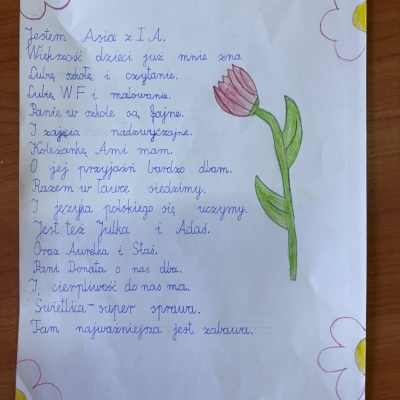 Jestem Asia z I A.
Większość dzieci już mnie zna.
Lubię szkołę i czytanie.
Lubię WF i malowanie.
Panie w szkole są fajne.
I zajęcia nadzwyczajne.
Koleżankę Ami mam.
O jej przyjaźń bardzo dbam.
Razem w ławce siedzimy.
I języka polskiego się uczymy.
Jest też Julka i Adaś.
Oraz Aurelka i Staś.
Pani Donata o nas dba.
I cierpliwość do nas ma.
Świetlica - super sprawa.
Tam najważniejsza jest zabawa.